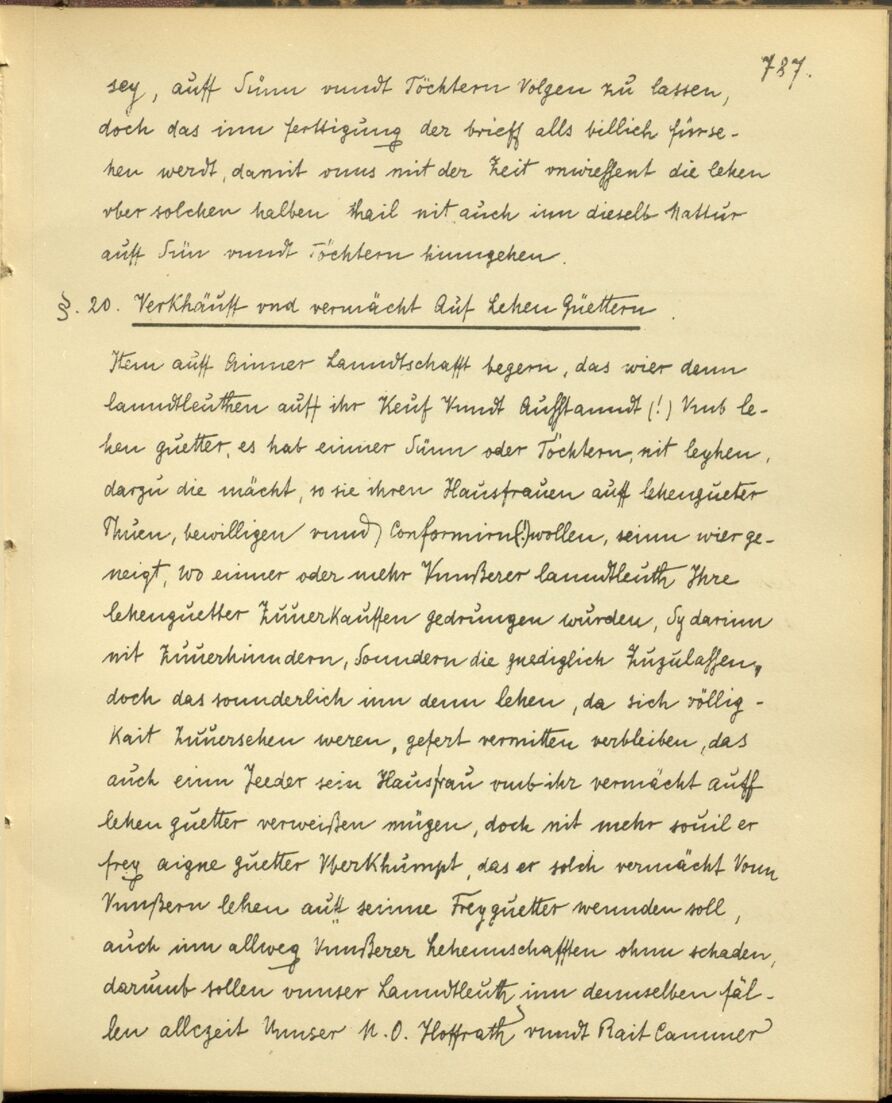 787.
sey, auff Sünn vnndt Töchtern Volgen zu lassen,
doch das inn ferttigung der brieff alls billich fürse-
hen werdt, damit vnns mit der Zeit vnwissent die lehen
vber solchen halben thail nit auch inn dieselb Nattur
auff Sün vnndt Töchtern hinngehen.
§. 20. Verkhäuff vnd vermächt Auf Lehen Güettern.
Item auff Ainner Lanndtschafft begern, das wier denn
lanndtleuthen auff ihr Keuf Vnndt Aufstanndt (!) Vmb le-
hen guetter, es hab einner Sünn oder Töchtern, nit leyhen,
darzu die mächt, so sie ihren Hausfrauen auff lehengueter
Thuen, bewilligen vnnd Conformirn(!) wollen, seinn wier ge-
neigt, wo einner oder mehr Vnnßerer lanndtleuth Ihre
lehenguetter Zuuerkauffen gedrungen wurden, Sy darinn
nit Zuuerhinndern, Sonndern die gnediglich Zuzulassen,
doch das sonnderlich inn denn lehen, da sich völlig-
Kait Zuuersehen weren, gefert vermitten verbleiben, das
auch einn Jeeder sein Hausfrau vmb ihr vermächt auff
lehen guetter verweißen mügen, doch nit mehr souil er
frey aigne guetter Vberkhumpt, das er solch vermächt Vonn
Vnnßern lehen auff seinne Freyguetter wennden soll,
auch inn allweg Vnnßerer Lehennschafften ohnn schaden,
darumb sollen vnnser Lanndtleuth inn dennselben fäl-
len allezeit Vnnser N. O. Hoffrath vnndt Rait Cammer